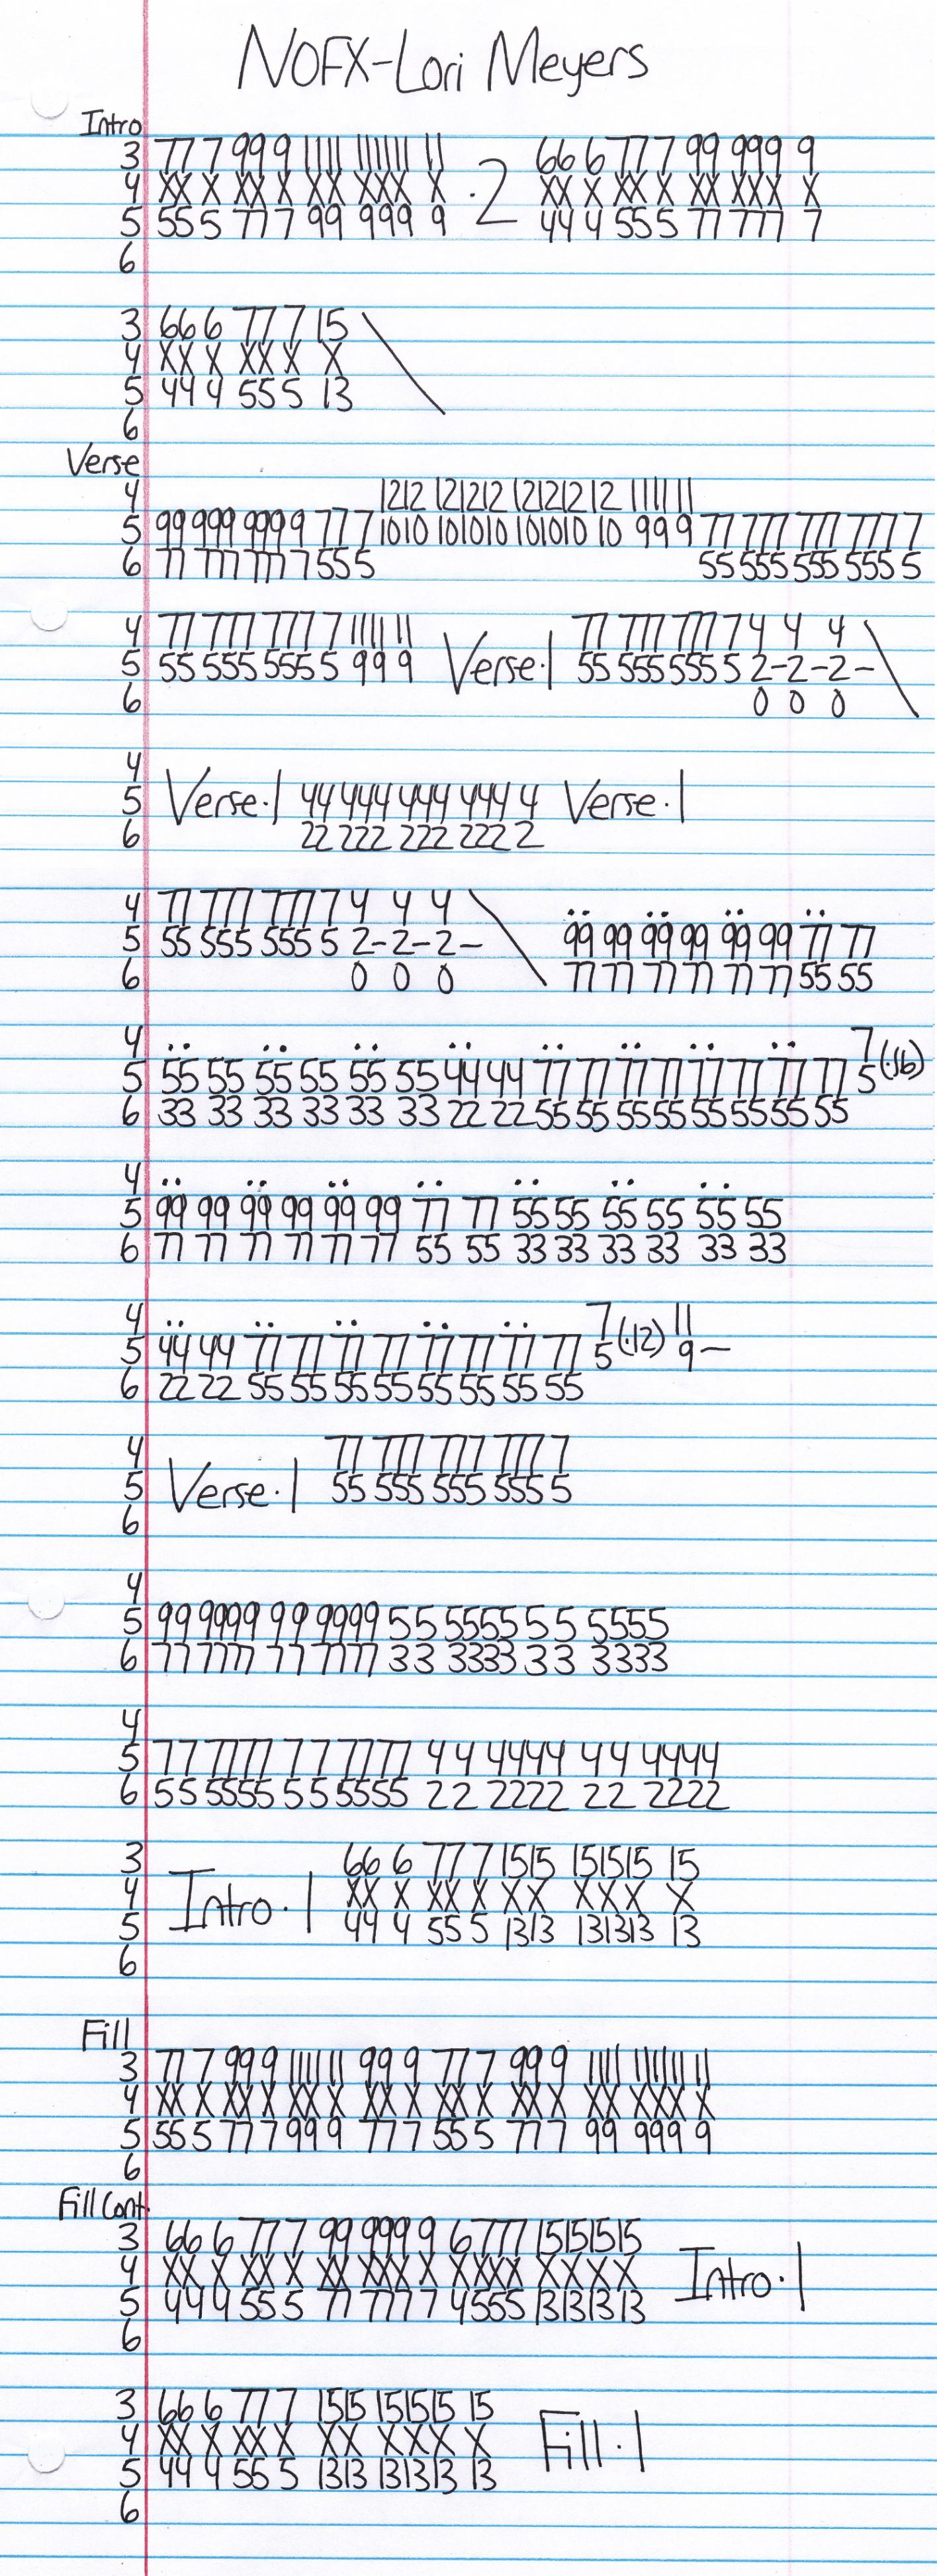 NOFX-Lori Meyers
Intro
3 77 7 99 9 1111 111111 11 ·2 66 6 77 7 99 999 9
4 XX X XX X XX XXX X XX X XX X XX XXX X
5 55 5 77 7 99 999 9 44 4 55 5 77 777 7
6
3 66 6 77 7 15 \
4 XX X XX X X
5 44 4 55 5 13
6
Verse
4 1212 121212 12121212 12 1111 11
5 99 999 999 9 77 7 1010 101010 101010 10 99 9 77 777 777 777 7
6 77 777 777 7 55 5 55 555 555 555 5
4 77 777 777 7 1111 11 77 777 777 7 4 4 4 \
5 55 555 555 5 99 9 Verse·1 55 555 555 5 2-2-2-
6 0 0 0
4
5 Verse·1 44 444 444 444 4 Verse·1
6 22 222 222 222 2
4 77 777 777 7 4 4 4 \
5 55 555 555 5 2-2-2- 99 99 99 99 99 99 77 77
6 0 0 0 77 77 77 77 77 77 55 55
4 7
5 55 55 55 55 55 55 44 44 77 77 77 77 77 77 77 77 5(·16)
6 33 33 33 33 33 33 22 22 55 55 55 55 55 55 55 55
4
5 99 99 99 99 99 99 77 77 55 55 55 55 55 55
6 77 77 77 77 77 77 55 55 33 33 33 33 33 33
4 7 11
5 44 44 77 77 77 77 77 77 77 77 5(·12) 9-
6 22 22 55 55 55 55 55 55 55 55
4 77 777 777 777 7
5 Verse·1 55 555 555 555 5
6
4
5 99 9999 99 9999 55 5555 55 5555
6 77 7777 77 7777 33 3333 33 3333
4
5 77 7777 77 7777 44 4444 44 4444
6 55 5555 55 5555 22 2222 22 2222
3 66 6 77 7 1515 151515 15
4 Intro·1 XX X XX X XX XXX X
5 44 4 55 5 1313 131313 13
6
Fill
3 77 7 99 9 1111 11 99 9 77 7 99 9 1111 111111 11
4 XX X XX X XX X XX X XX X XX X XX XXX X
5 55 5 77 7 99 9 77 7 55 5 77 7 99 999 9
6
Fill Cont.
3 66 6 77 7 99 999 9 6 777 15151515
4 XX X XX X XX XXX X XXXX XXXX Intro·1
5 44 4 55 5 77 777 7 4555 13131313
6
3 66 6 77 7 1515 151515 15
4 XX X XX X XX XXX X Fill·1
5 44 4 55 5 1313 131313 13
6